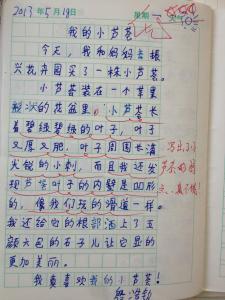 2013年5月19日 星期
我的小芦荟
今天，我和妈妈去振
兴花卉园买了一株小芦荟。
小芦荟装在一个苹果
形状的花盆里。小芦荟长
着碧绿碧绿的叶子，叶子
又厚又肥，叶子周围长满
尖锐的小刺，而且我还发
现芦荟叶子的内壁是凹形
的，像我们玩的滑道一样。
我还给它的根部洒上了五
颜六色的石子儿让它显的
更加美丽。
我真喜欢我的小芦荟！
写出了小
芦荟的特
点，真棒！